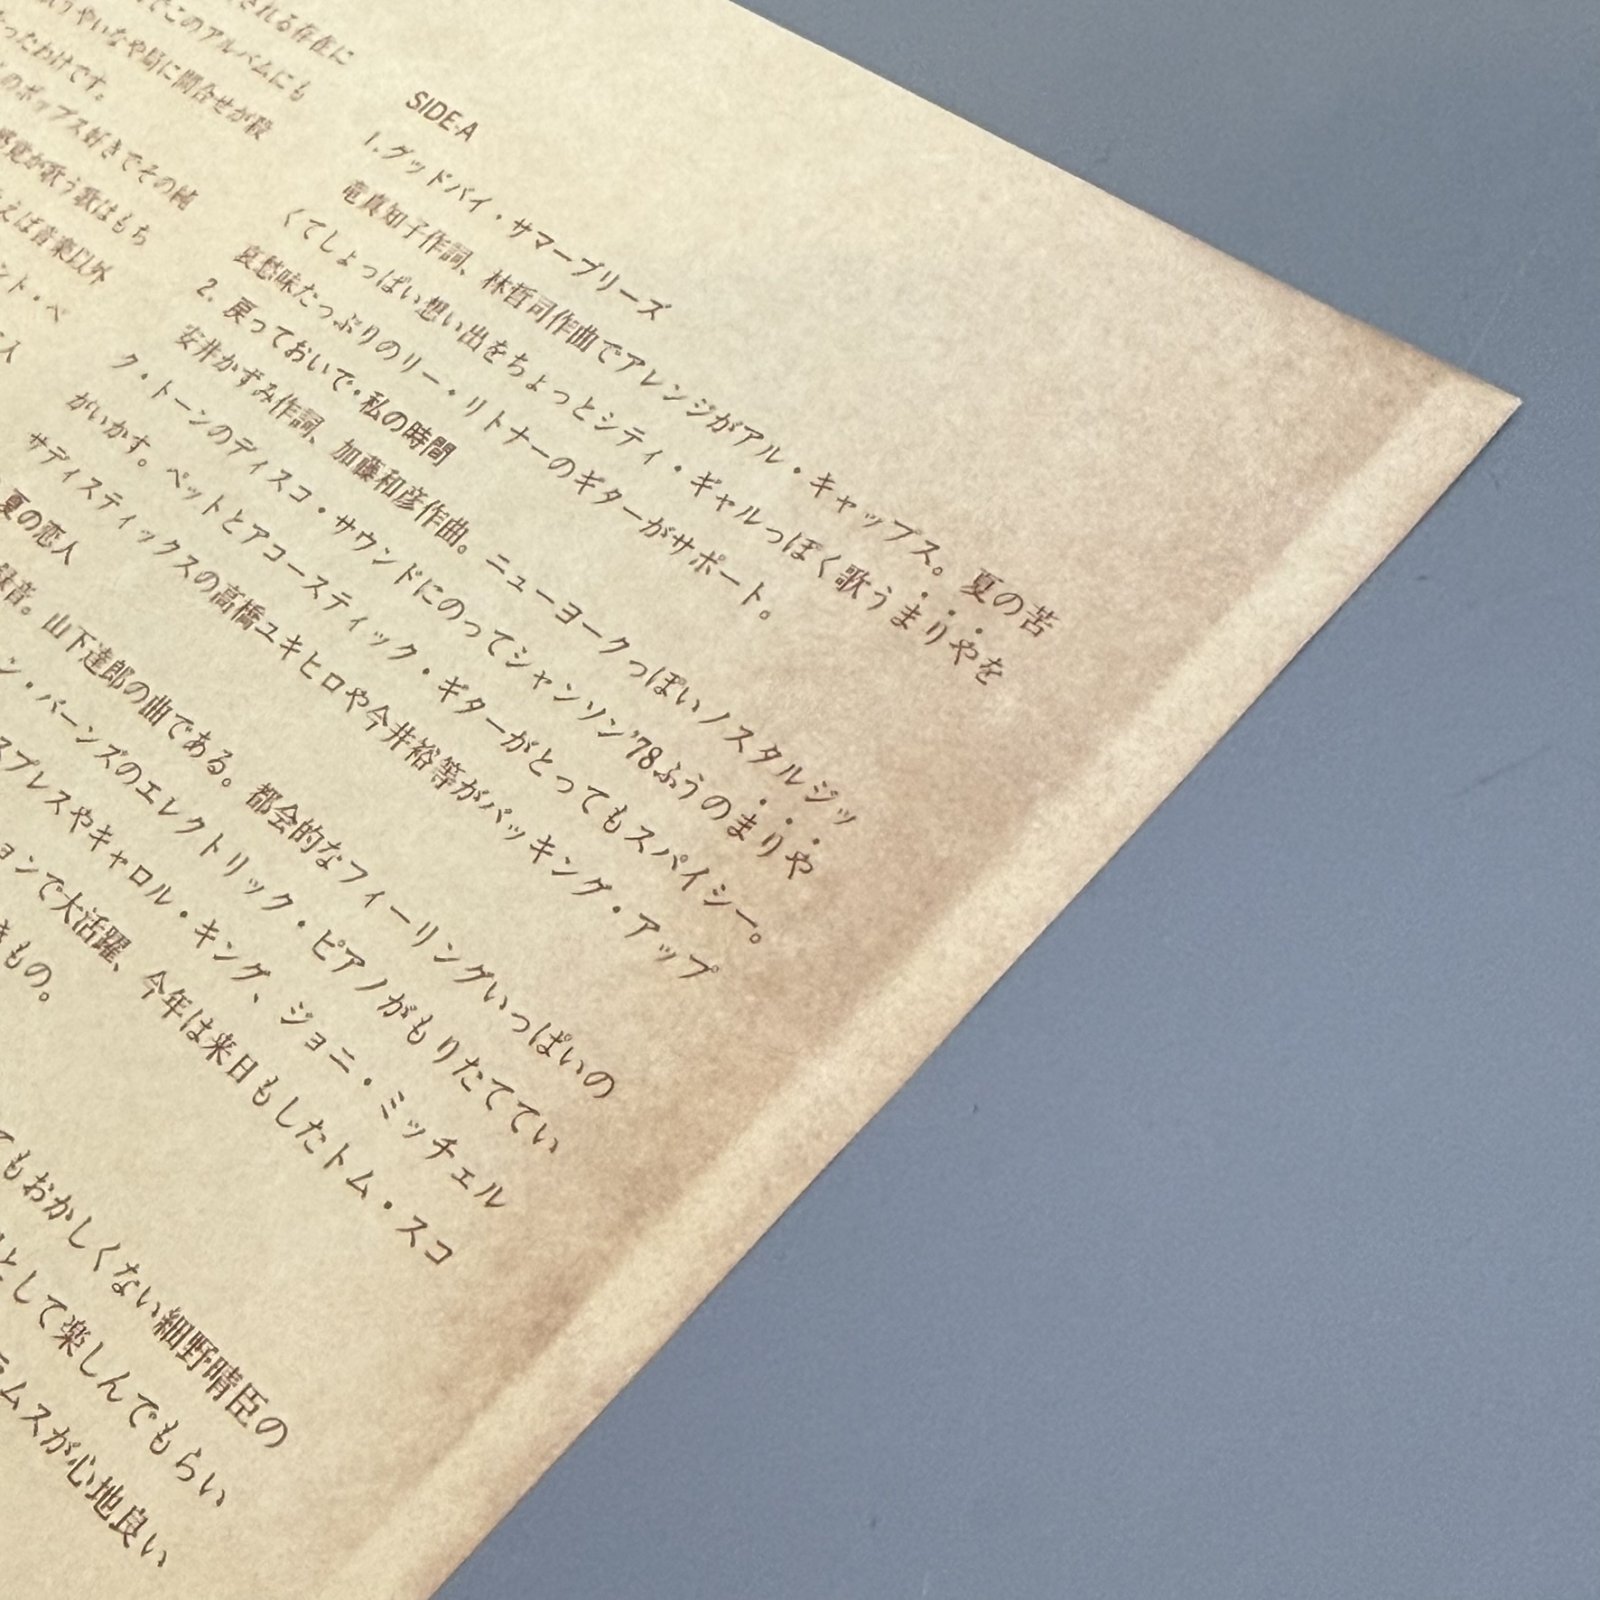 される存在に
でこのアルバムにも
に問合せが殺
ったわけです。
のポップス好きでその純
が歌う歌はもち
えば音楽以外
ント・ベ
SIDE-A
1.グッドバイ・サマーブリーズ
竜真知子作詞、林哲司作曲でアレンジがアル・キャップス。夏の苦
くてしょっぱい想い出をちょっとシティ・ギャルっぽく歌うまりやを
哀愁味たっぷりのリー・リトナーのギターがサポート。
2. 戻っておいで・私の時間
安井かずみ作詞、加藤和彦作曲。ニューヨークっぽいノスタルジッ
ク・トーンのディスコ・サウンドにのってシャンソン'78ふうのまりや
がいかす。ペットとアコースティック・ギターがとってもスパイシー。
サディスティックスの高橋ユキヒロや今井裕等がバッキング・アップ
夏の恋人
録音。山下達郎の曲である。都会的なフィーリングいっぱいの
ン・バーンズのエレクトリック・ピアノがもりたててい
スプレスやキャロル・キング、ジョニ・ミッチェル
ョンで大活躍、今年は来日もしたトム・スコ
きもの。
てもおかしくない細野晴臣の
として楽しんでもらい
ラムスが心地良い